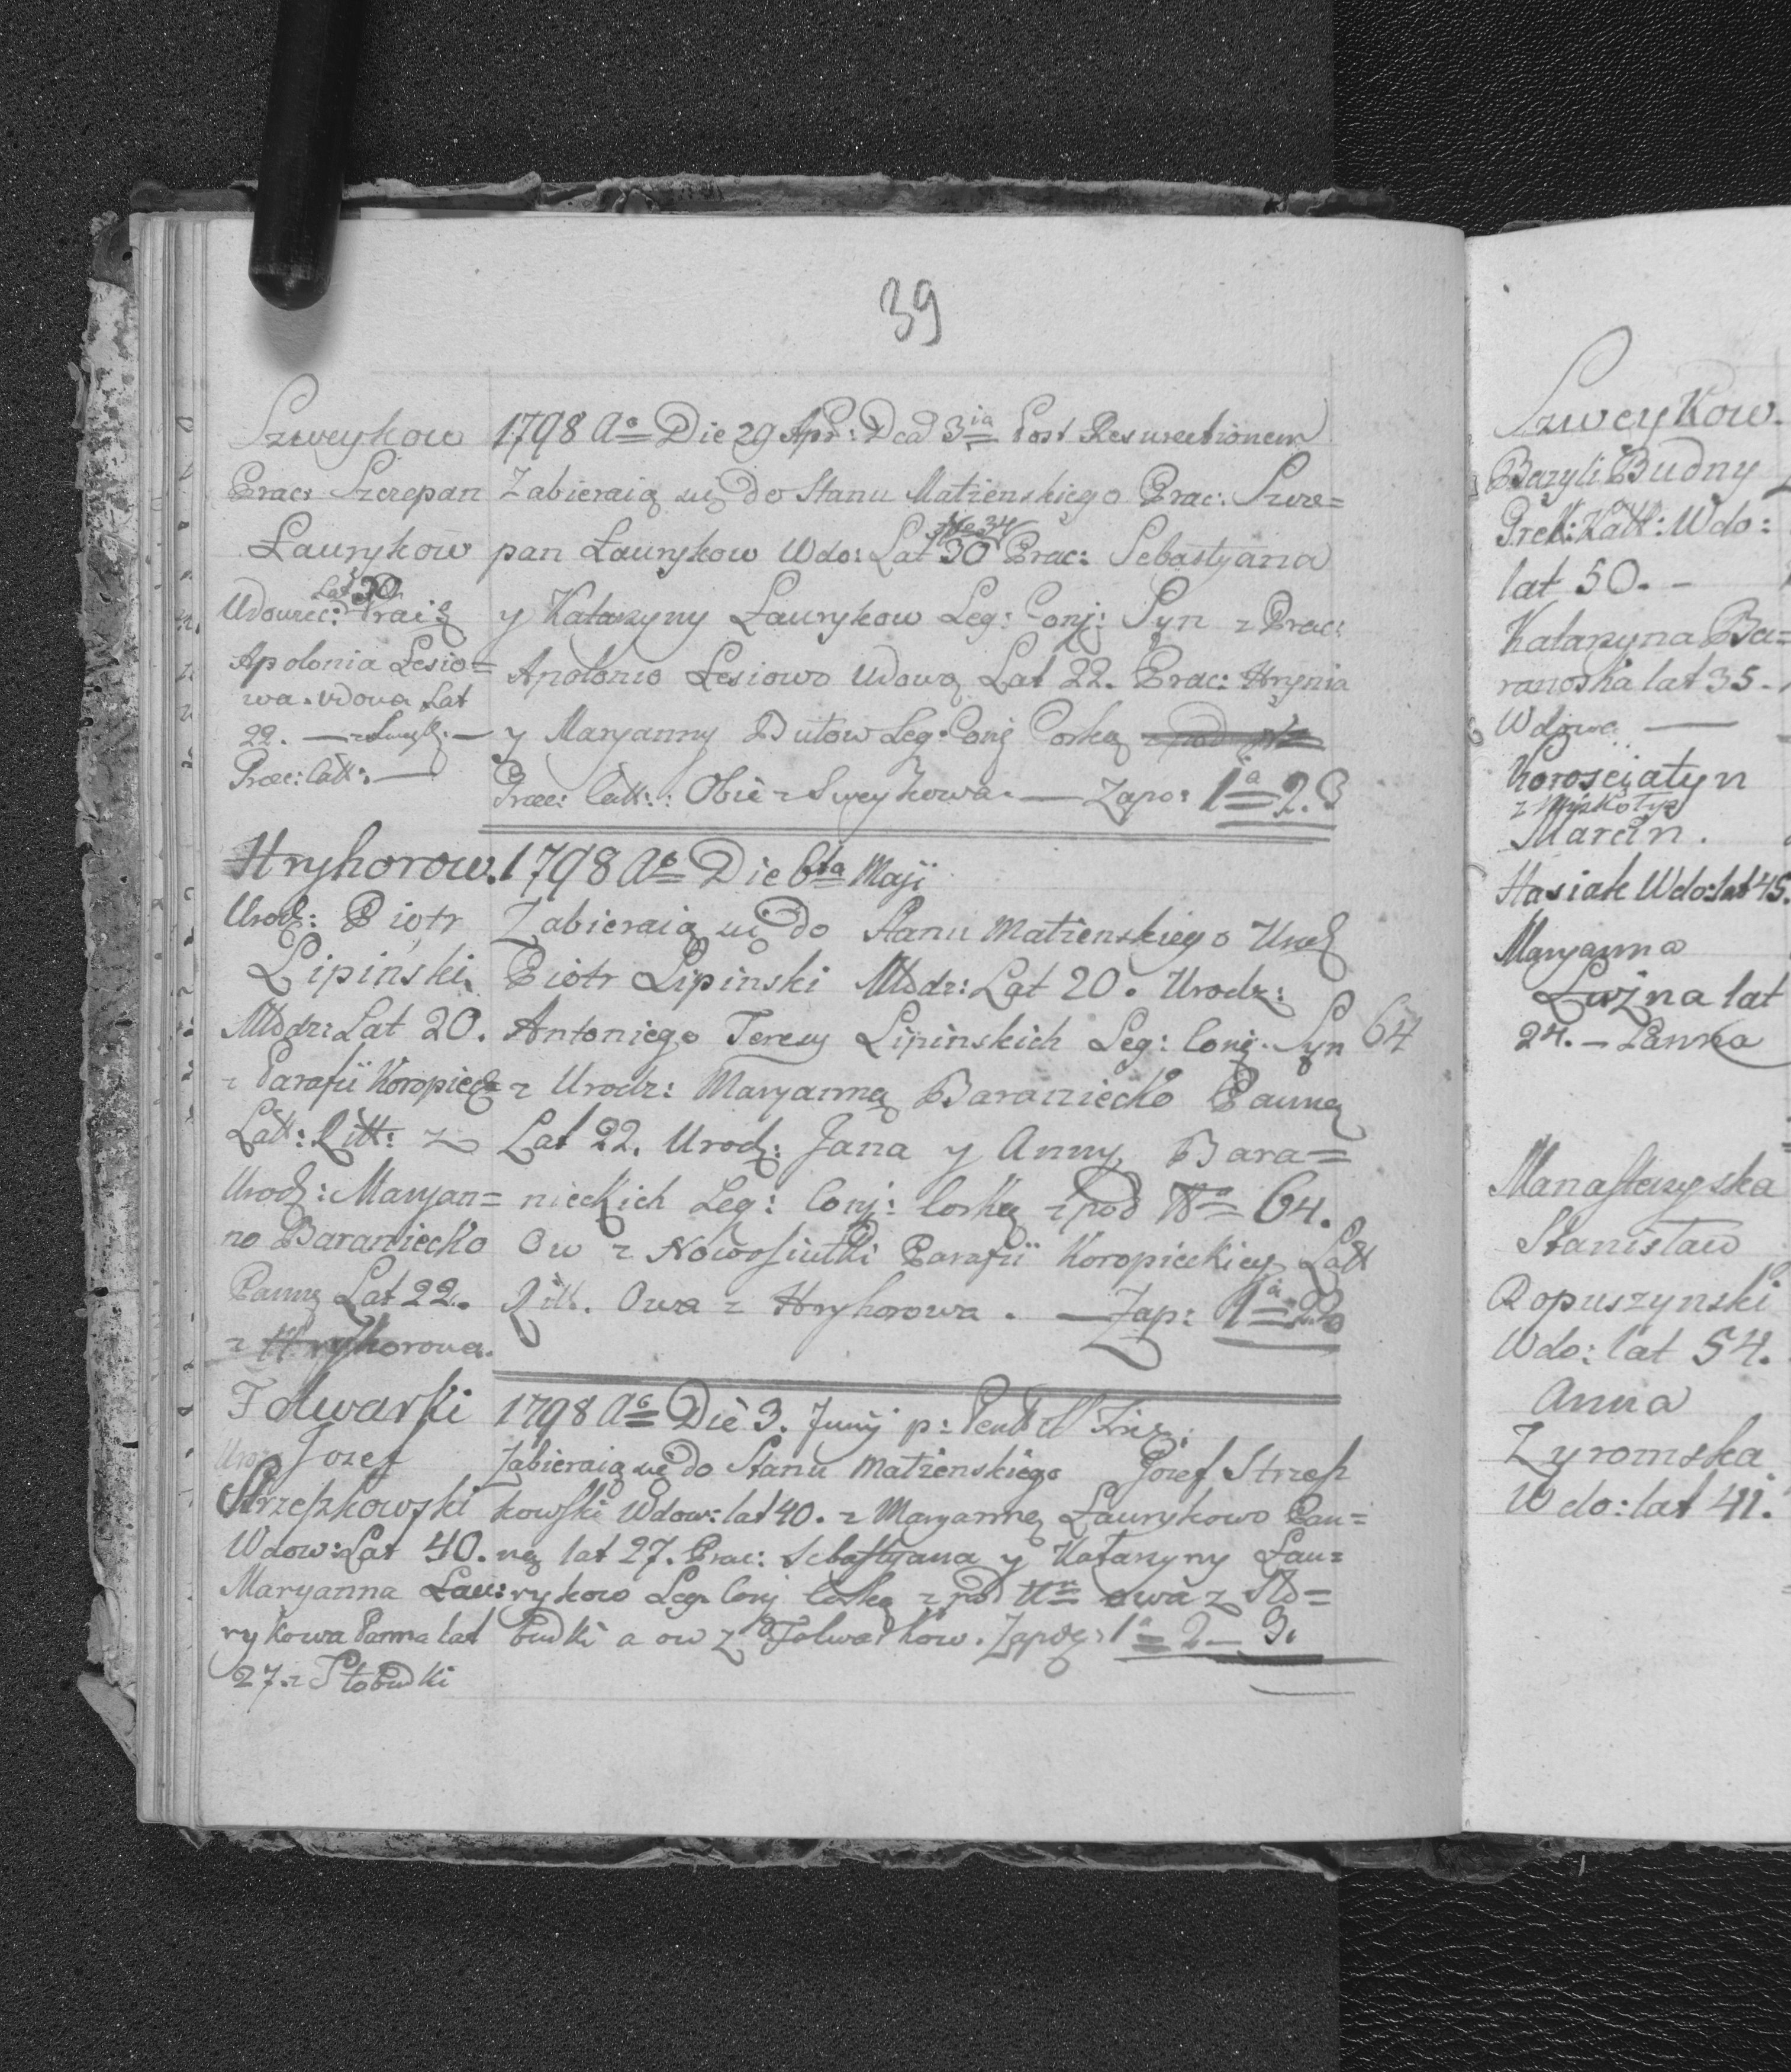 39
Szweykow
Prac: Szczepan
Ławrykow
Lat 30
Udowiec: Prac: z
Apolonia Lesio=
wa. vdova Lat
22. —
Græc: Catt: —
1798 Ao Die 29 Apr: Dca 3ia Post Resurectionem
Zabieraią się do Stanu Małżenskiego Prac: Szcze=
No 34
pan Ławrykow Wdo: Lat 30 Prac: Sebastyana
y Katarzyny Ławrykow Leg: Conj: Syn z Prac:
Apolonio Lesiowo Udową Lat 22. Prac: Hrynia
y Maryanny Butow Leg: Conj Corką z pod
Græc: Catt: Obie z Sweykowa. — Zapo: 1a 2. 3
Hryhorow.
Urodz: Piotr
Lipiński
Młodz: Lat 20.
z Parafii Koropieck
Latt: Ritt: z
Urodz: Maryan=
no Baraniecko
Panną Lat 22.
z Hryhorowa.
1798 Ao Die 6ta Maji
Zabieraią się do Stanu Małżenskiego Urodz
Piotr Lipinski Młodz: Lat 20. Urodz:
Antoniego Teresy Lipinskich Leg: Conj. Syn 64
z Urodz: Maryanną Baraniecko Panną
Lat 22. Urodz: Jana y Anny Bara=
nieckich Leg: Conj: Corką z pod Nro 64.
Ow z Nowosiułki Parafii Koropieckiey Latt
Ritt. Owa z Hryhorowa. — Zap: 1a 2. 3
Folwarki
Urodz Jozef
Strzeszkowski
Wdow: Lat 40.
Maryanna Ław:
rykowa Panna lat
27. z Słobudki
1798 Ao Die 3. Junij p: Pent
Zabieraią się do Stanu Małżenskiego Jozef Strzesz
kowski Wdow: lat 40. z Maryanną Ławrykowo Pan=
ną lat 27. Prac: Sebastyana y Katarzyny Ław=
rykow Leg. Conj Corką z pod Nro owa z Sło=
budki a ow z Folwarkow. Zapo: 1a 2 — 3.
Szweykow.
Bazyli Budny
Græk: Katt: Wdo:
lat 50. —
Katarzyna Ba=
ranoska lat 35.
Wdowa —
Korosciatyn
Marcin.
Hasiak Wdo: lat 45.
Maryanna
Luzna lat
24. — Panna
Manasterzyska
Stanisław
Ropuszynski
Wdo: lat 54.
Anna
Zyromska
Wdo: lat 41.